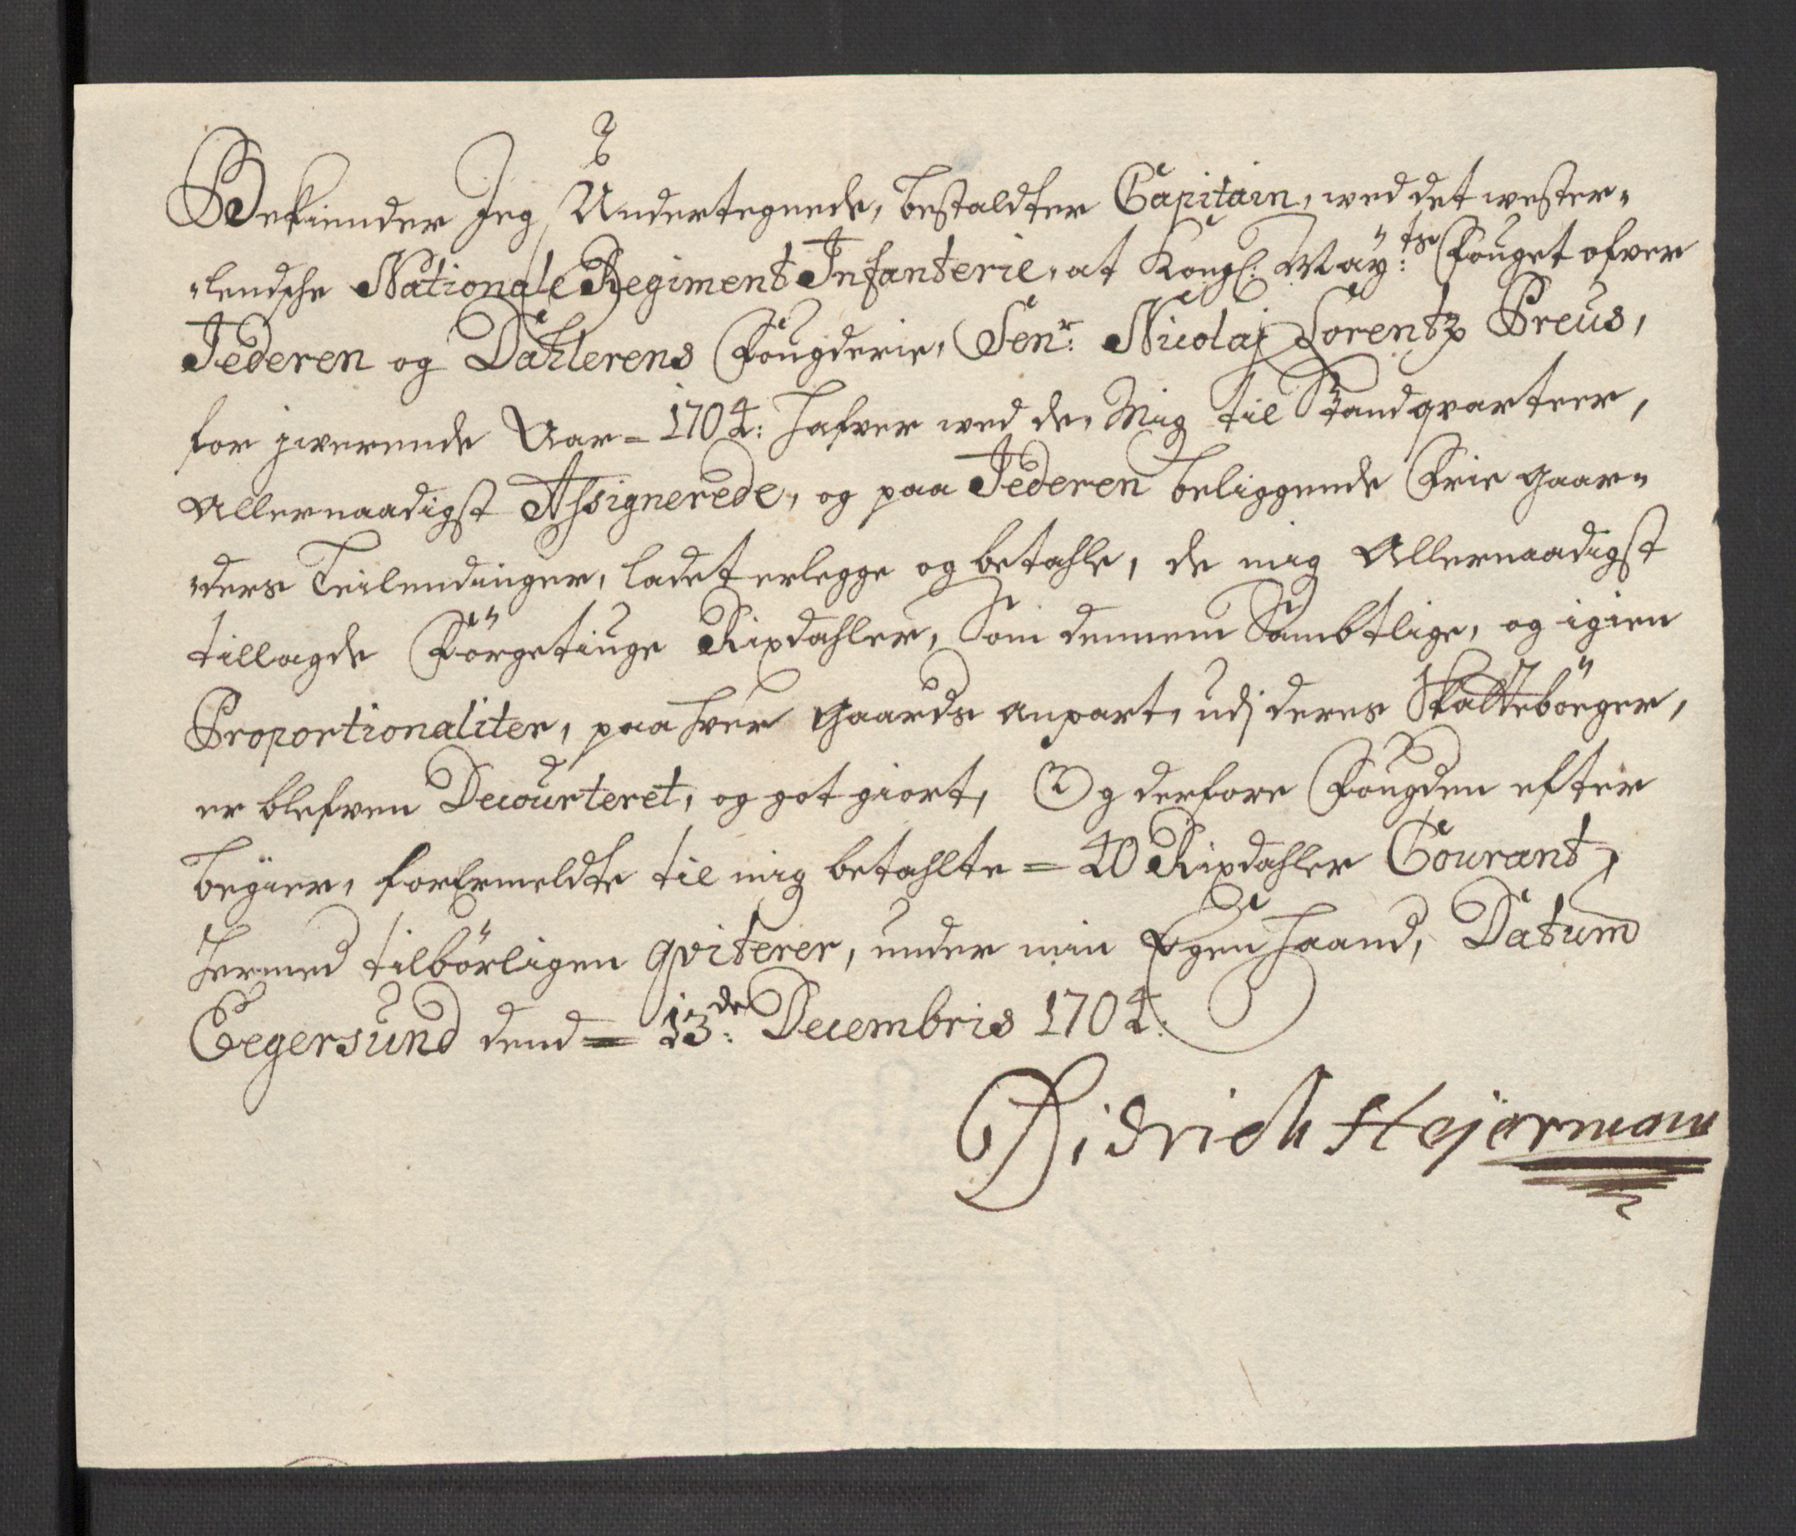 Bekiender Jeg Undertegnede, bestaldter Capitain, wed det wester-
-lendsche Nationale Regiment Infanterie, at Kongl: Maÿ:ts Fouget ofver
Jederen og Dahlerens Fougderie, Senr: Nicolaj Lorentz Preus,
for jwerende Aar = 1704: hafver wed de, Mig til Standqvarteer,
Allernaadigst Assignerede, og paa Jederen beliggende Frie gaar-
-ders Leilendinger, ladet erlegge og betahle, de mig Allernaadigst
tillagde Förgetiuge Rixdahler, Som dennem Sambtlige, og igien
Proportionaliter, paa hver gaards anpart, udj deres Skatteböger,
er blefven Decourteret, og got giort, Og derfore Fougden efter
begier, forErmeldte til mig betahlte = 40 Rixdahler Courant,
hermed tilbörligen qviterer, under min Egen Haand, Datum
Eegersund dend = 13de: Decembris 1704.
Didrich Hejermann